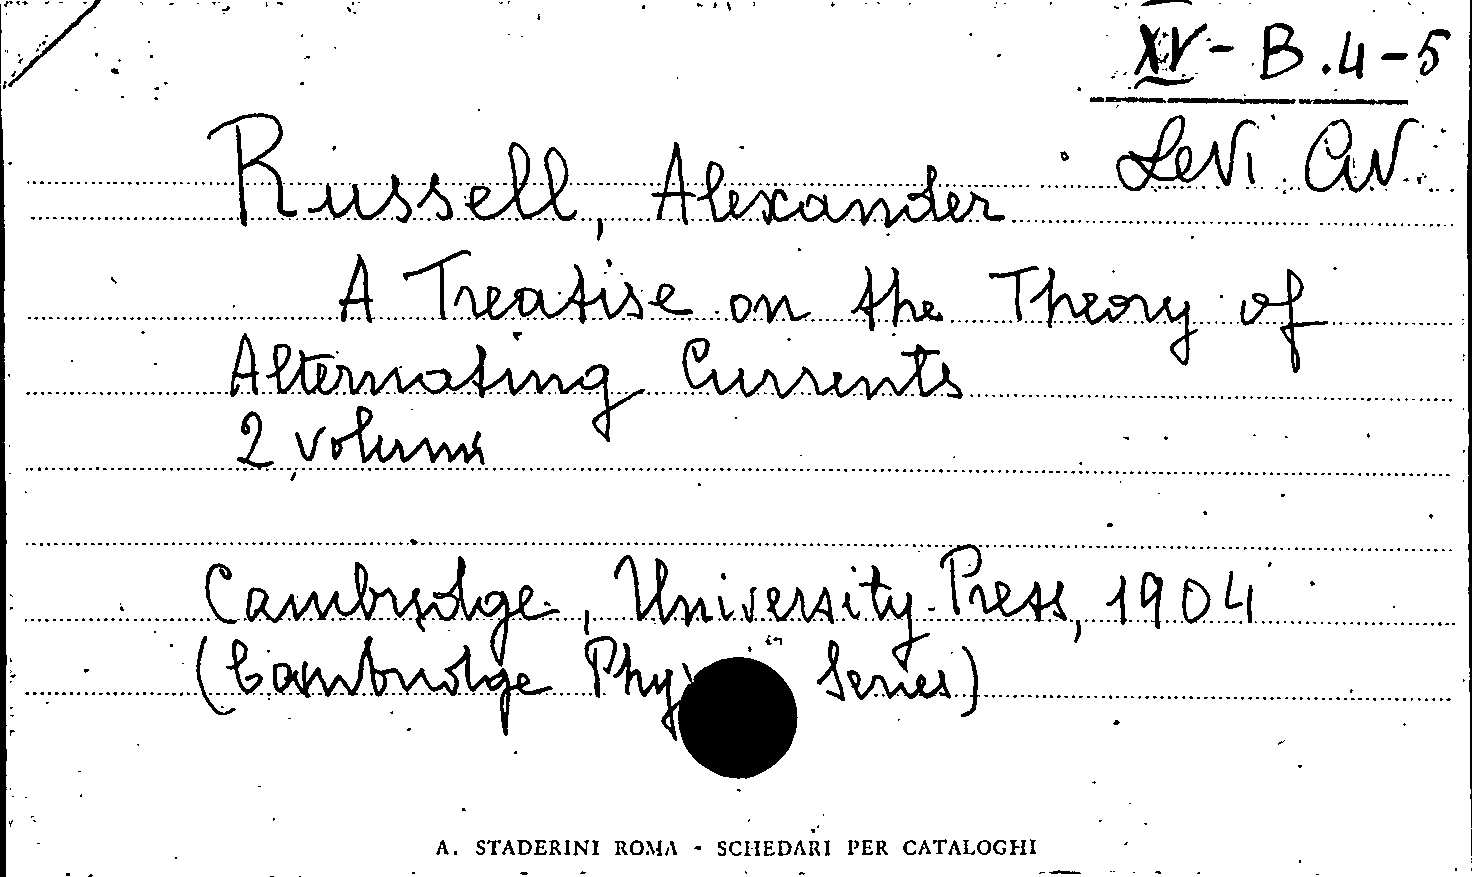 XV - B.4-5
Levi Civ.
Russell, Alexander
A Treatise on the Theory of
Alternating Currents
2 volumi
Cambridge, University Press, 1904
(Cambridge Phy Series)
A. STADERINI ROMA - SCHEDARI PER CATALOGHI